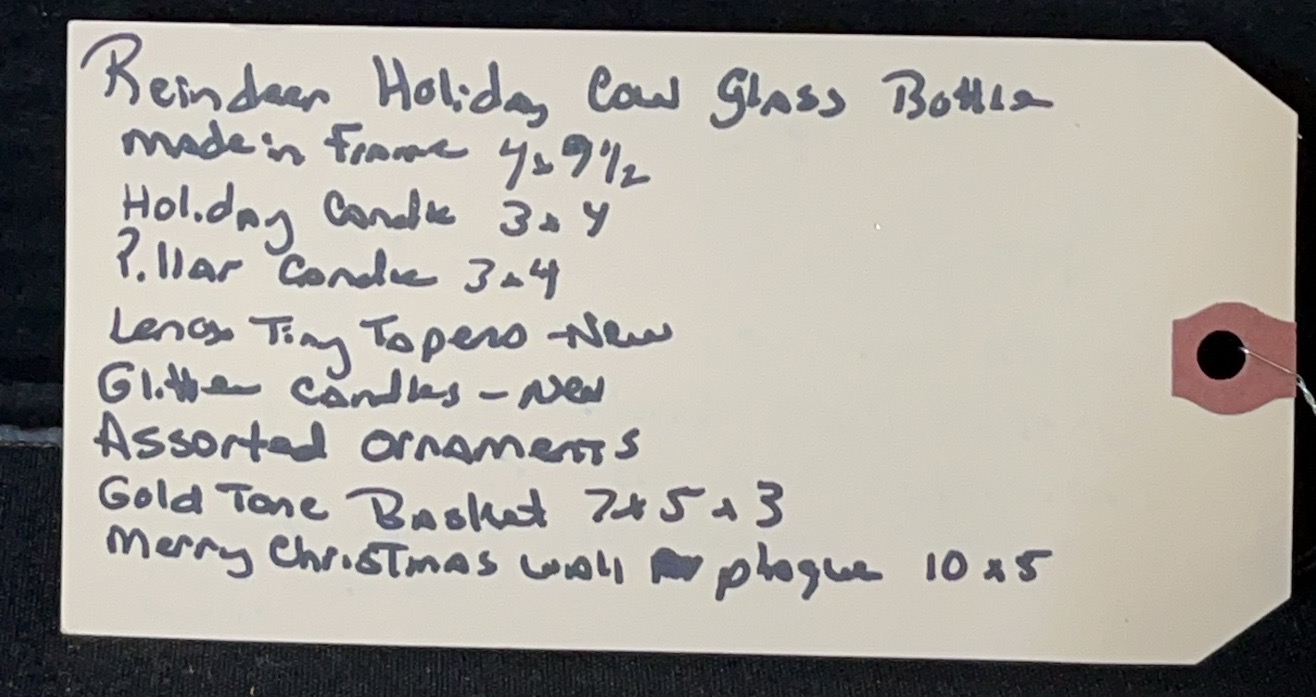 Reindeer Holiday Cow Glass Bottle
made in France 4x9 1/2
Holiday Candle 3x4
Pillar Candle 3x4
Lenox Tiny Tapers - New
Glitter Candles - New
Assorted Ornaments
Gold Tone Basket 7x5x3
Merry Christmas wall plague 10x5